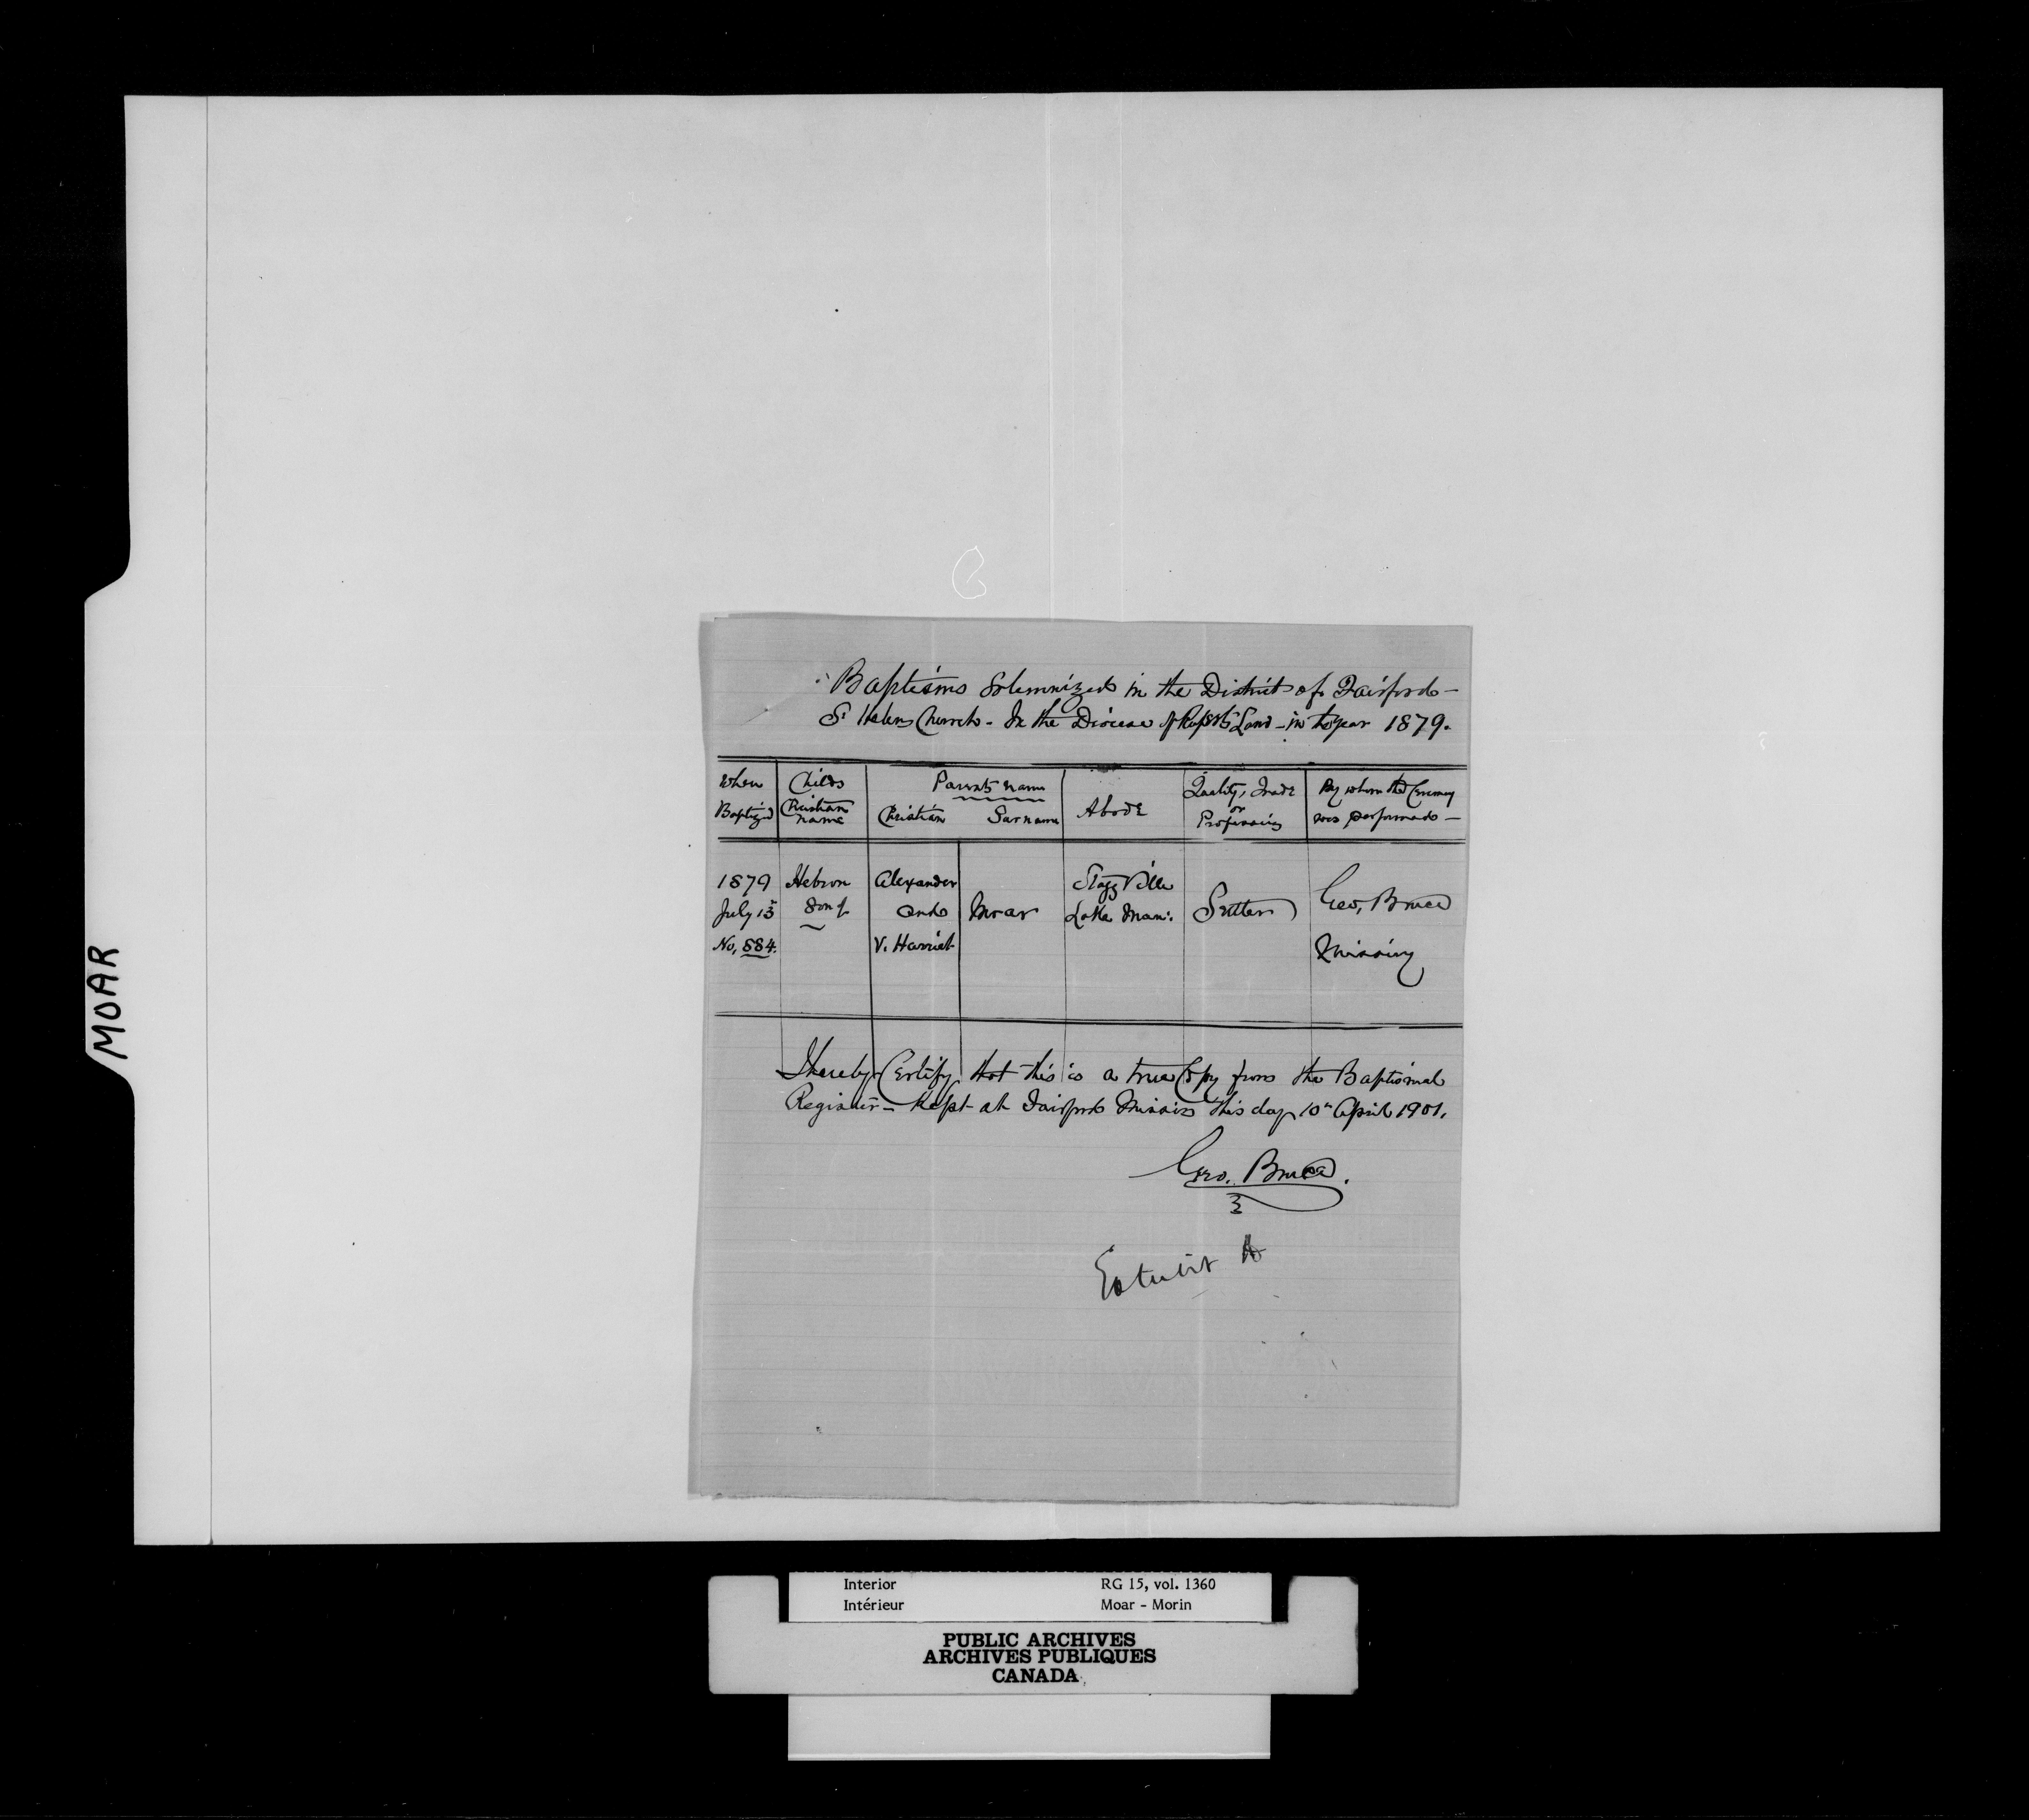 Baptisms Solemnized in the District of Fairford –
St Helens Church - In the Diocese of Ruperts Land - in the year 1879.
When Baptized
Childs Christian name
Parents name
Christian
Surname
Abode
Quality, Trade or Profession
By whom the Ceremony was performed –
1879
July 13
No, 884.
Hebron
Son of
Alexander
and
V. Harriet
Moar
Stagg Ville
Lake Man:
Settler
Geo, Bruce
Missiony
I hereby Certify that this is a true Copy from the Baptismal
Register - Kept at Fairford Mission this day 10th April 1901.
Geo. Bruce.
Exhibit A
MOAR
Interior
Intérieur
RG 15, vol. 1360
Moar - Morin
PUBLIC ARCHIVES
ARCHIVES PUBLIQUES
CANADA